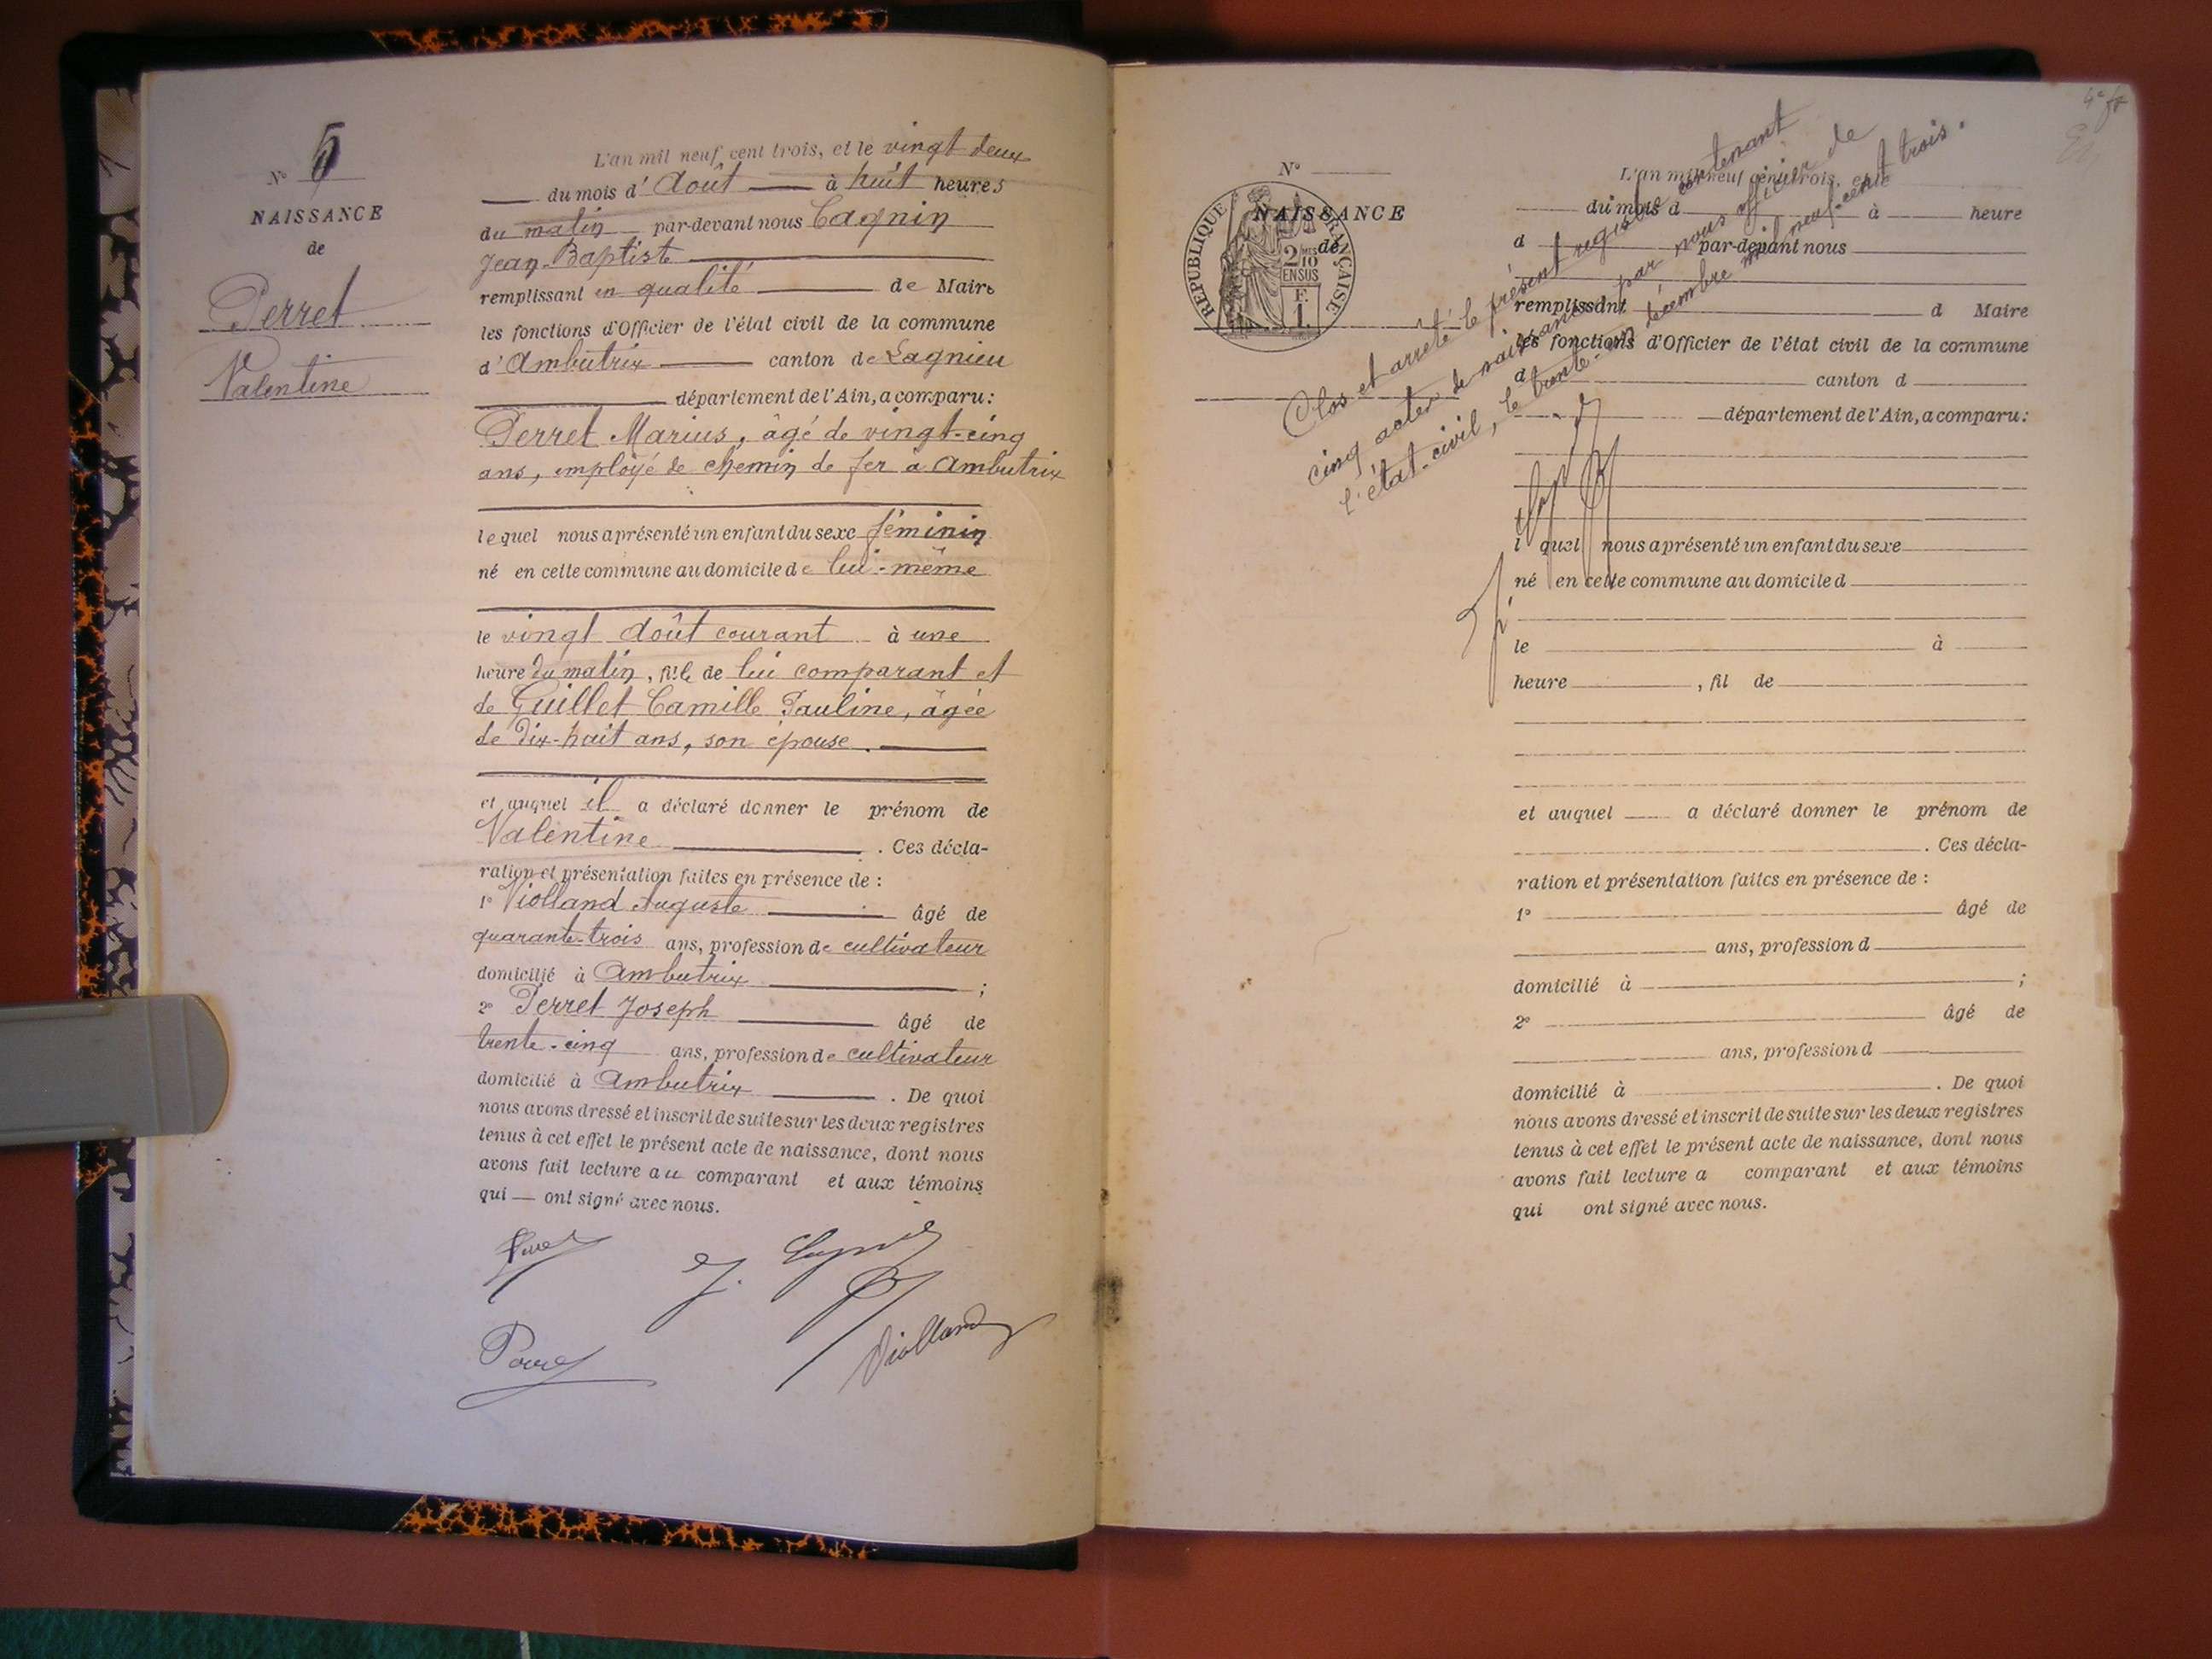 N° 5
NAISSANCE
de
Perret
Valentine
L'an mil neuf cent trois, et le vingt deux
du mois d'Août à huit heures
du matin par-devant nous Cagnin
Jean-Baptiste
remplissant en qualité de Maire
les fonctions d'Officier de l'état civil de la commune
d'Ambutrix canton de Lagnieu
département de l'Ain, a comparu:
Perret Marius, âgé de vingt-cinq
ans, employé de chemin de fer à Ambutrix
lequel nous a présenté un enfant du sexe féminin
né en cette commune au domicile de lui-même
le vingt Août courant à une
heure du matin, fille de lui comparant et
de Guillet Camille Pauline, âgée
de dix-huit ans, son épouse.
et auquel il a déclaré donner le prénom de
Valentine. Ces décla-
ration et présentation faites en présence de :
1° Violland Auguste âgé de
quarante-trois ans, profession de cultivateur
domicilié à Ambutrix ;
2° Perret Joseph âgé de
trente-cinq ans, profession de cultivateur
domicilié à Ambutrix. De quoi
nous avons dressé et inscrit de suite sur les deux registres
tenus à cet effet le présent acte de naissance, dont nous
avons fait lecture au comparant et aux témoins
qui ont signé avec nous.
Violland
N°
NAISSANCE
de
RÉPUBLIQUE FRANÇAISE
2/10
EN SUS
F.
1.
Clos et arrêté le présent registre contenant
cinq actes de naissance par nous officier de
l'état-civil, le trente-un décembre mil neuf-cent trois.
L'an mil neuf cent trois, et le
du mois d à heure
d par-devant nous
remplissant d Maire
les fonctions d'Officier de l'état civil de la commune
d canton d
département de l'Ain, a comparu:
l quel nous a présenté un enfant du sexe
né en cette commune au domicile d
le à
heure , fil de
et auquel a déclaré donner le prénom de
. Ces décla-
ration et présentation faites en présence de :
1° âgé de
ans, profession d
domicilié à ;
2° âgé de
ans, profession d
domicilié à . De quoi
nous avons dressé et inscrit de suite sur les deux registres
tenus à cet effet le présent acte de naissance, dont nous
avons fait lecture a comparant et aux témoins
qui ont signé avec nous.